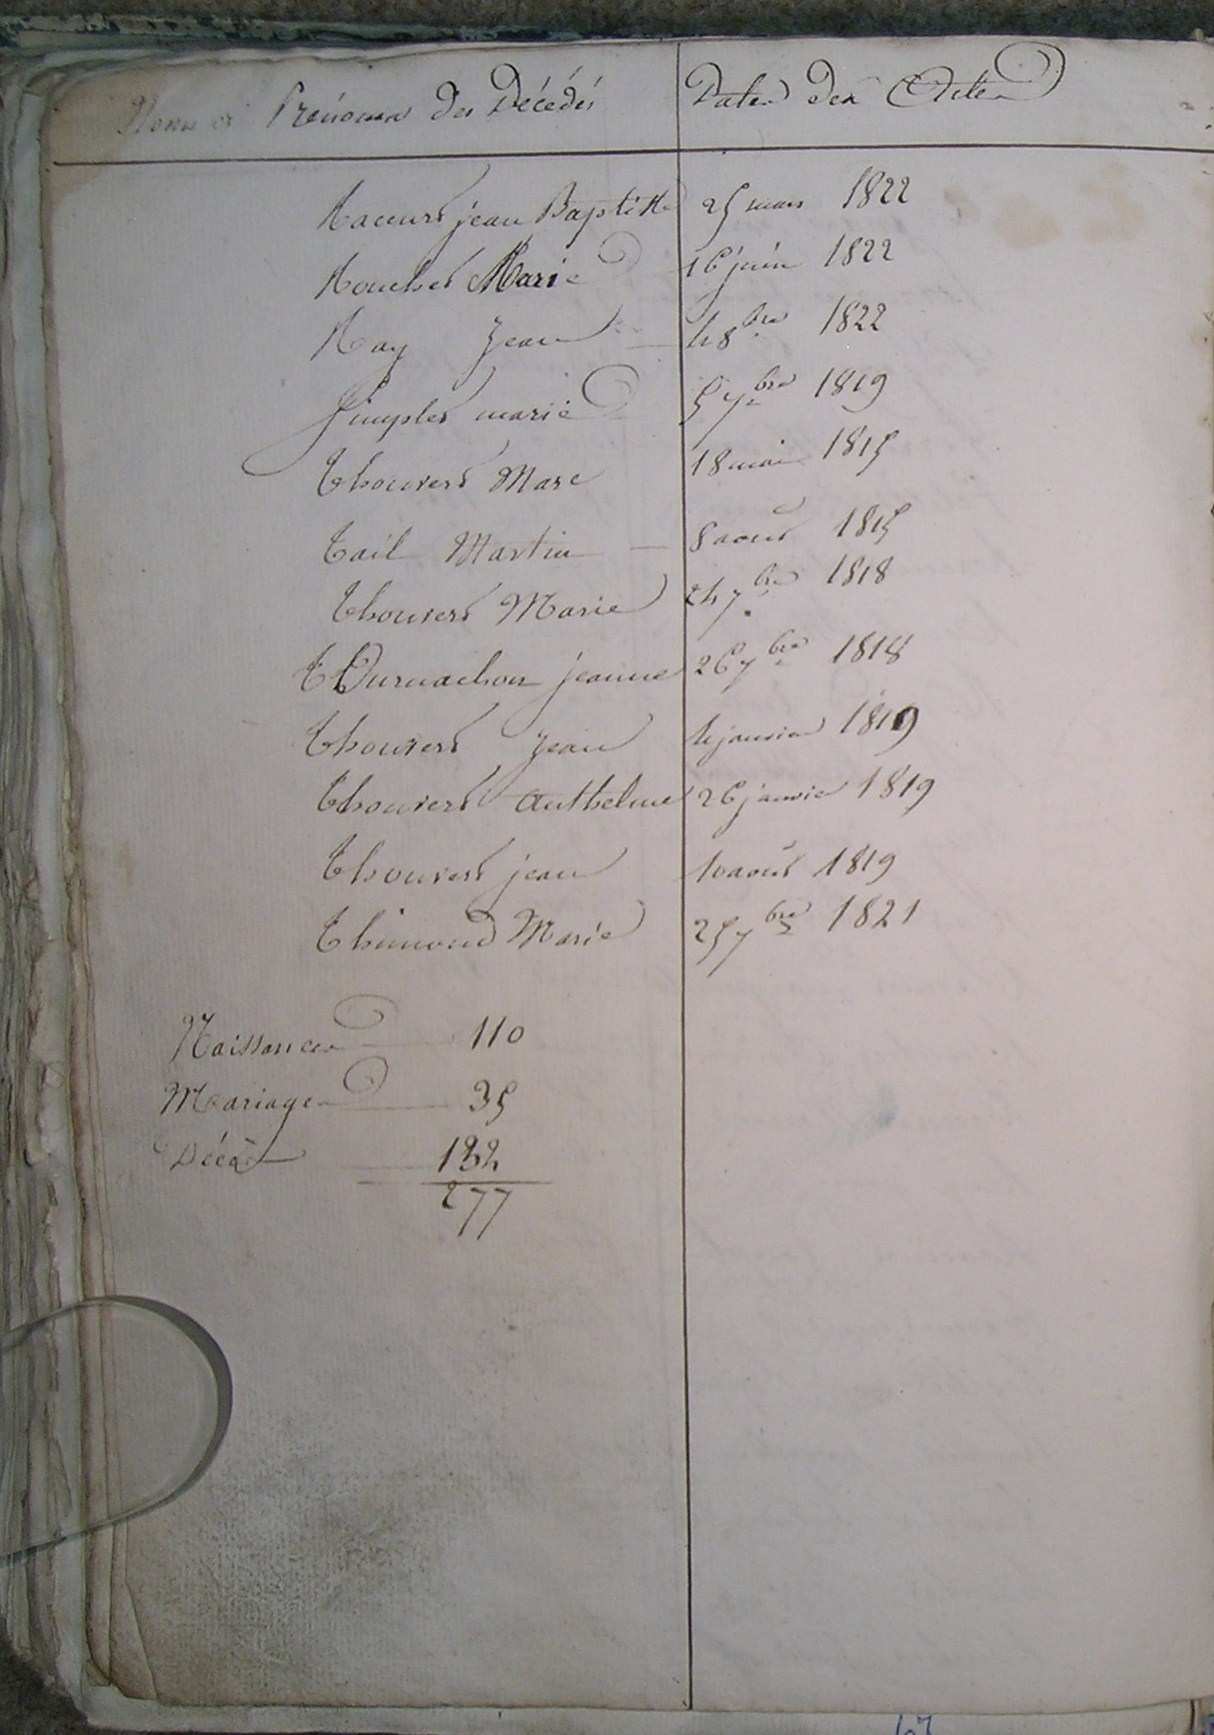 Noms et Prénoms des Décédés Dates des Actes
Racurt jean Baptiste 25 mars 1822
Rouchet Marie 16 juin 1822
Ray Jean 4 8bre 1822
Simplet marie 5 7bre 1819
Thouvert Marc 18 mai 1815
Tail Martin 8 aout 1815
Thouvert Marie 24 7bre 1818
Tournachon jeanne 26 7bre 1818
Thouvert Jean 4 janvier 1819
Thouvert Anthelme 26 janvier 1819
Thouvert jean 10 aout 1819
Thimond Marie 25 7bre 1821
Naissances 110
Mariages 35
Décès 132
277